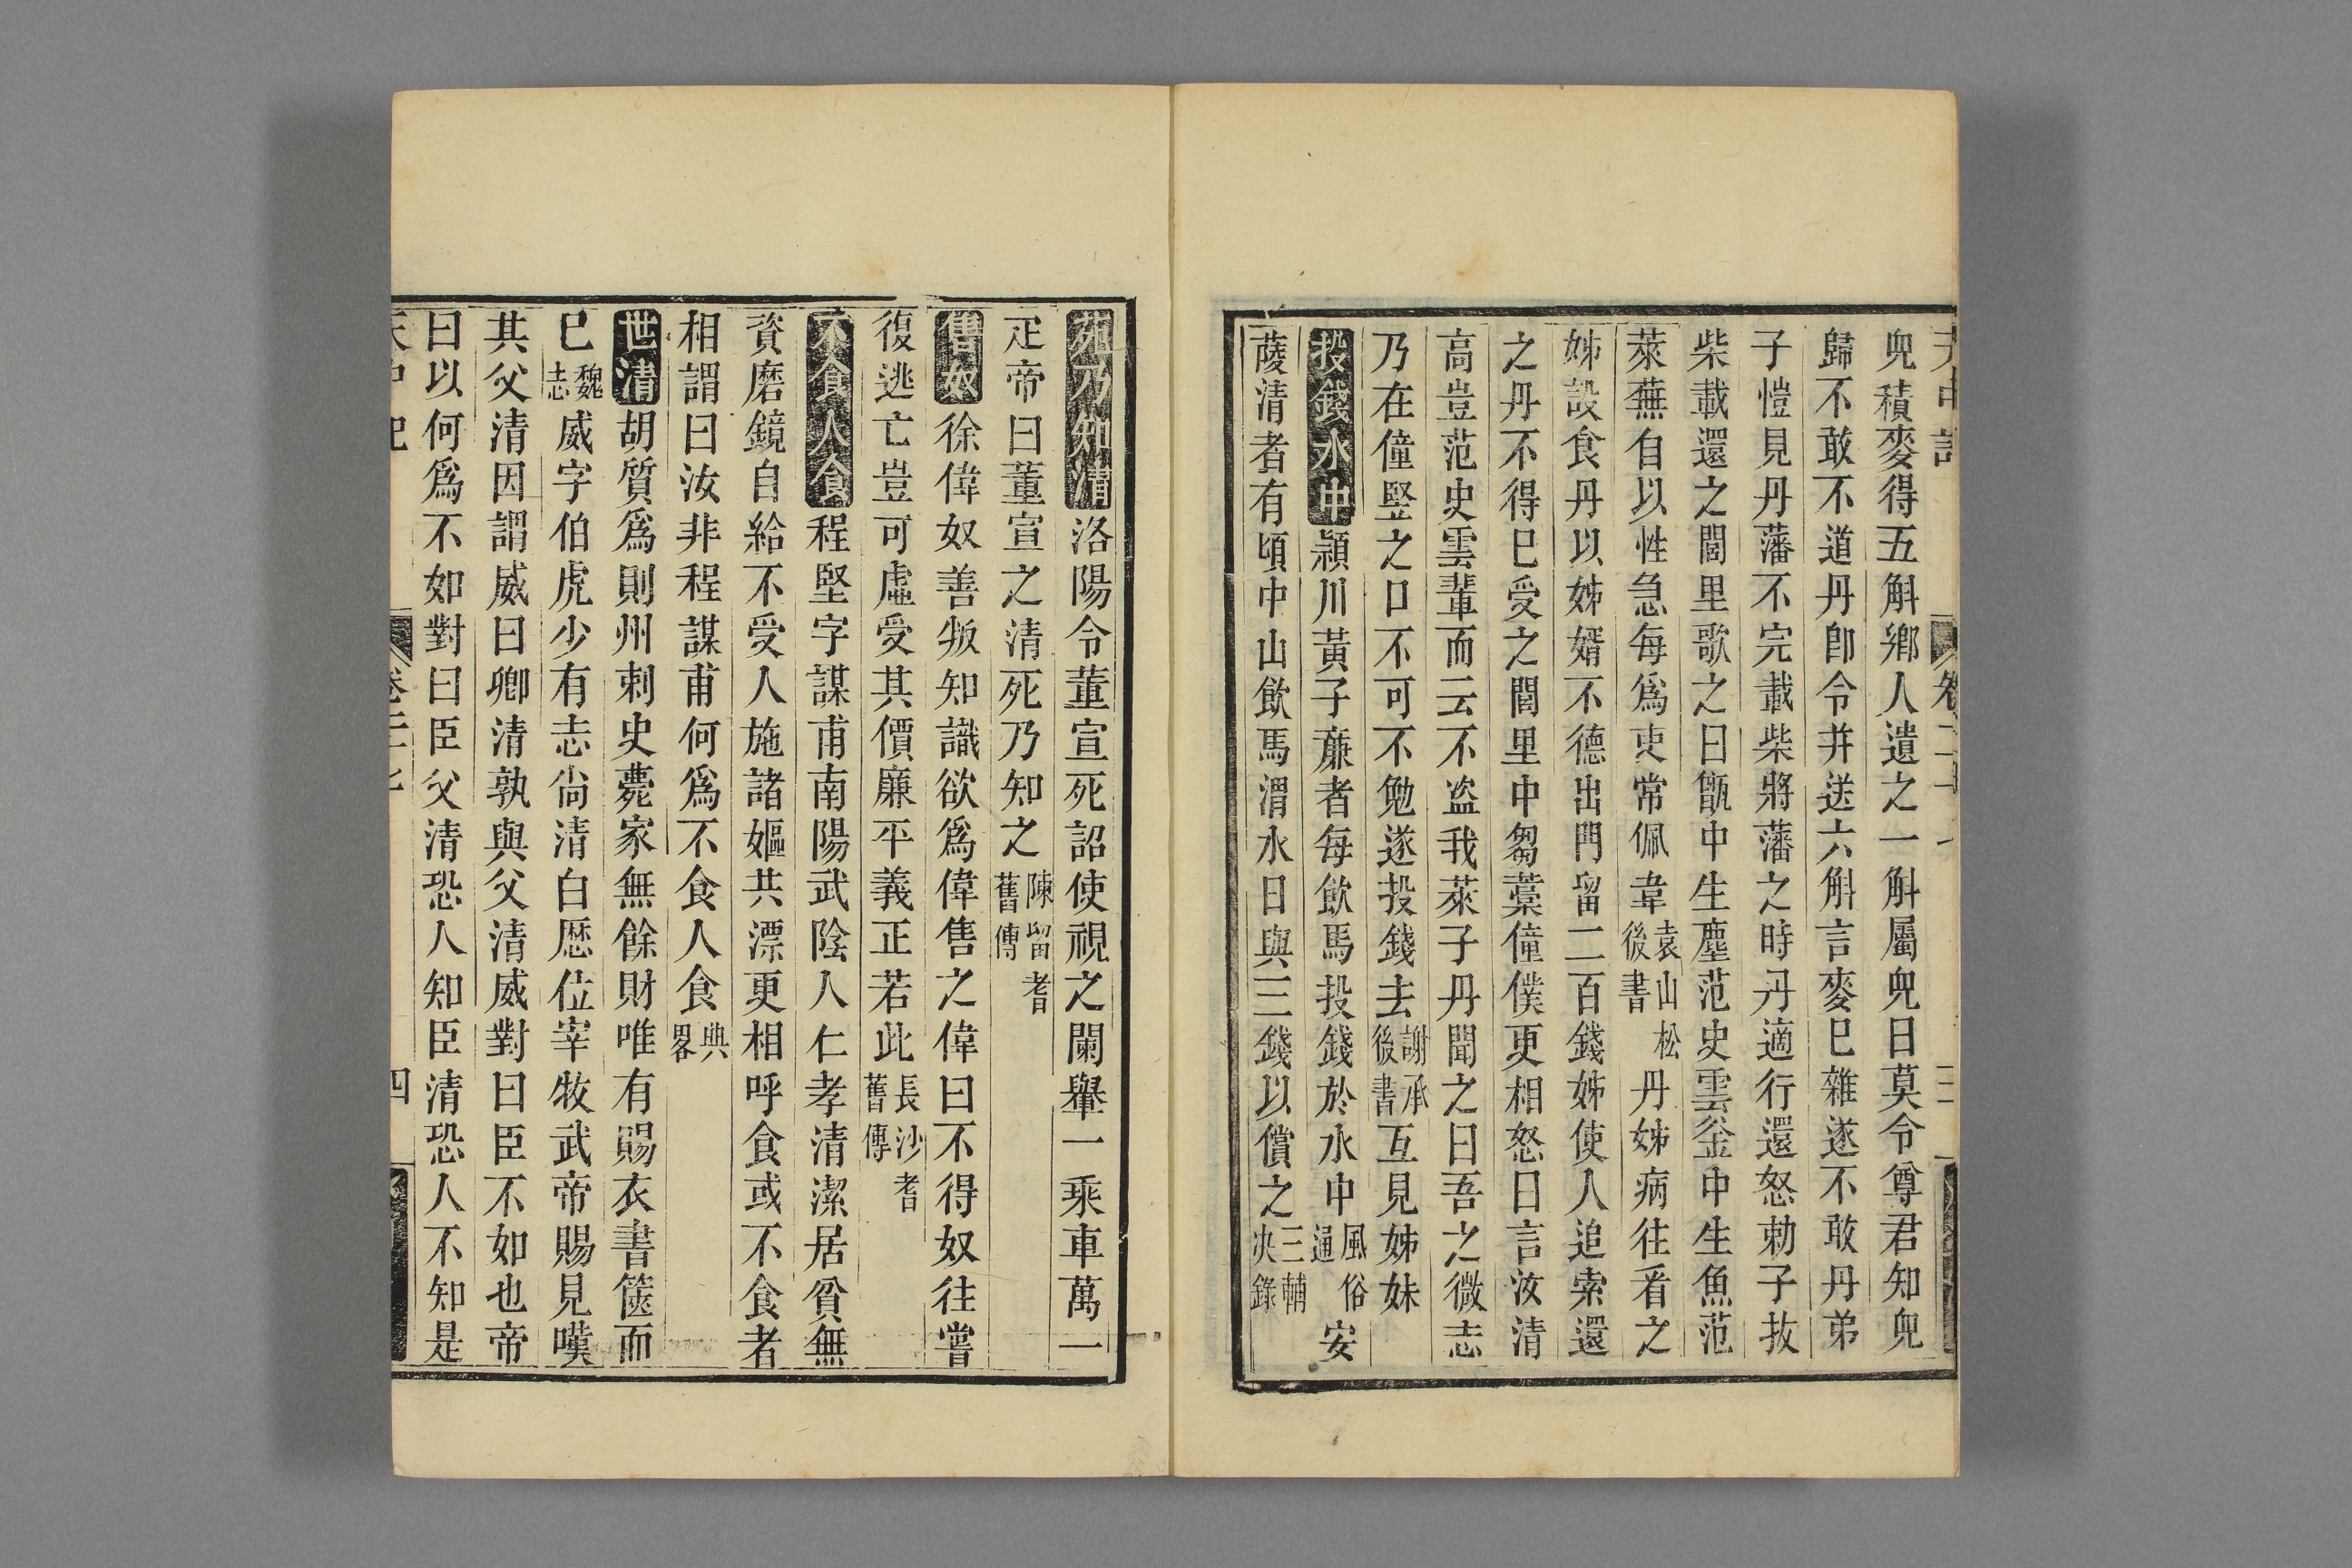 天中記 卷二十七 三
兜積麥得五斛鄉人遺之一斛屬兜曰莫令尊君知兜
歸不敢不道丹卽令幷送六斛言麥巳雜遂不敢丹弟
子愷見丹藩不完載柴將藩之時丹適行還怒勅子拔
柴載還之閭里歌之曰甑中生塵范史雲釜中生魚范
萊蕪自以性急每爲吏常佩韋袁山松後書丹姊病往看之
姊設食丹以姊婿不德出門留二百錢姊使人追索還
之丹不得巳受之閭里中芻藁僮僕更相怒曰言汝清
高豈范史雲輩而云不盗我萊子丹聞之曰吾之微志
乃在僮竪之口不可不勉遂投錢去謝承後書互見姊妹
投錢水中潁川黃子亷者每飲馬投錢於水中風俗通安
薐清者有項中山飲馬渭水日與三錢以償之三輔决錄
死乃知清洛陽令董宣死詔使視之闌轝一乘車萬一
疋帝曰董宣之清死乃知之陳留耆舊傳
售奴徐偉奴善叛知識欲爲偉售之偉曰不得奴往嘗
復逃亡豈可虛受其價廉平義正若此長沙耆舊傳
不食人食程堅字謀甫南陽武陰人仁孝清潔居貧無
資磨鏡自給不受人施諸嫗共漂更相呼食或不食者
相謂曰汝非程謀甫何爲不食人食典畧
世清胡質爲則州刺史薨家無餘財唯有賜衣書篋而
巳魏志威字伯虎少有志尙清白歷位宰牧武帝賜見嘆
其父清因謂威曰卿清孰與父清威對曰臣不如也帝
曰以何爲不如對曰臣父清恐人知臣清恐人不知是
天中記 卷二十七 四